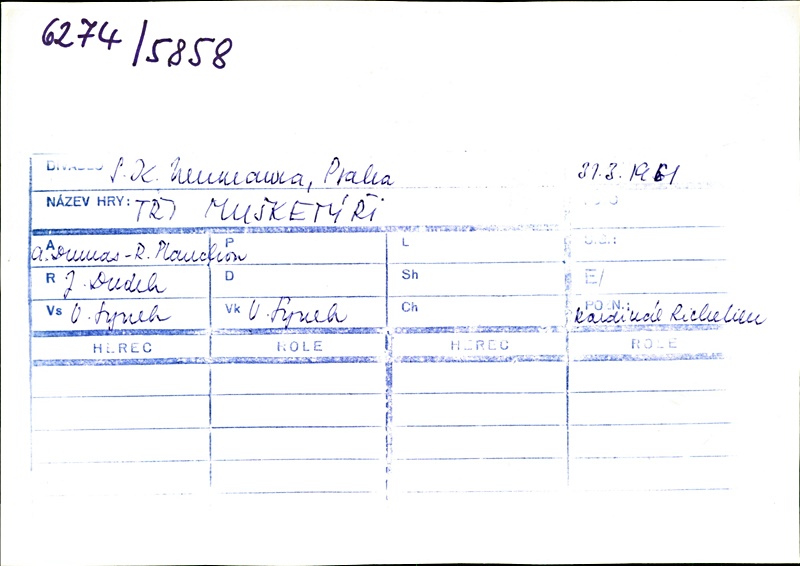 6274/5858
DIVADLO S.K. Neumanna, Praha 31.3.1961
NÁZEV HRY: TŘI MUŠKETÝŘI
A A. Dumas - R. Planchon P L
R J. Dudek D Sh E/
Vs V. Synek Vk V. Synek Ch POZN.: kardinál Richelieu
HEREC ROLE HEREC ROLE